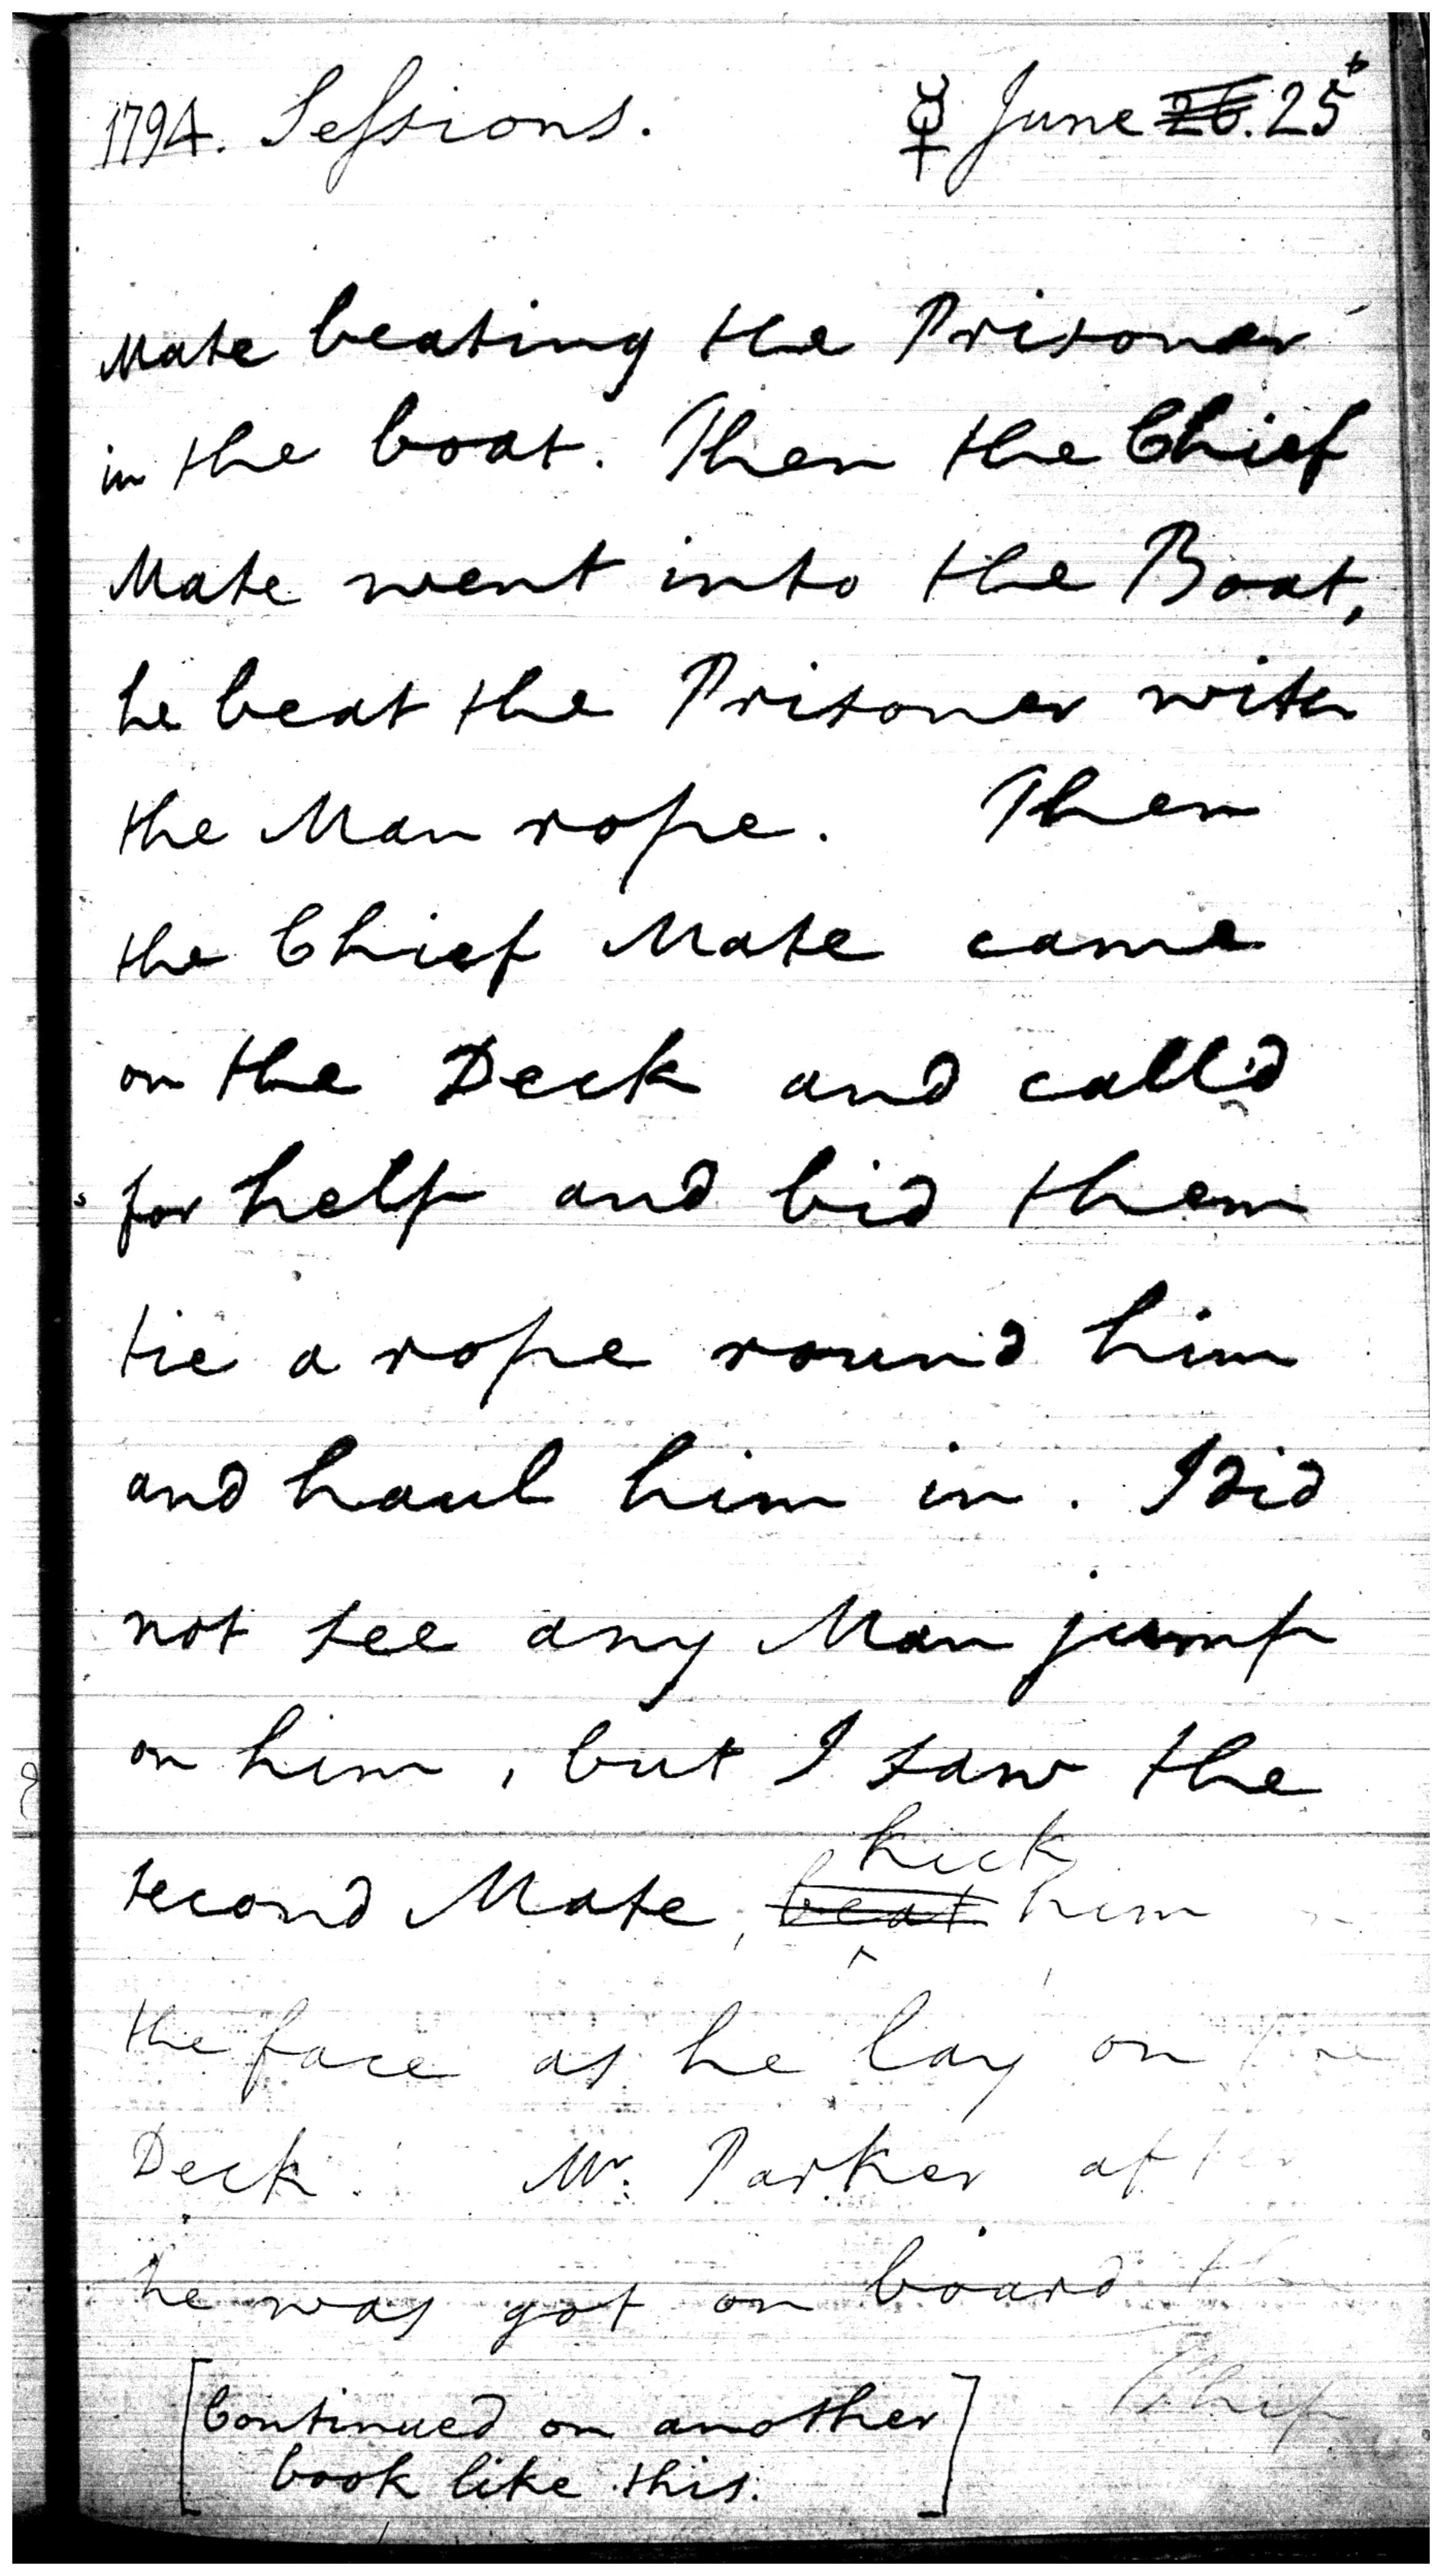 1794. Sessions. ☿ June 26. 25
Mate beating the Prisoner
in the boat. Then the Chief
Mate went into the Boat,
he beat the Prisoner with
the Man rope. Then
the Chief Mate came
on the Deck and call'd
for help and bid them
tie a rope round him
and haul him in. I did
not see any Man jump
on him, but I saw the
kick
second Mate, beat him
the face as he lay on the
Deck. Mr. Parker after
he was got on board
Ship
[Continued on another
book like this.]